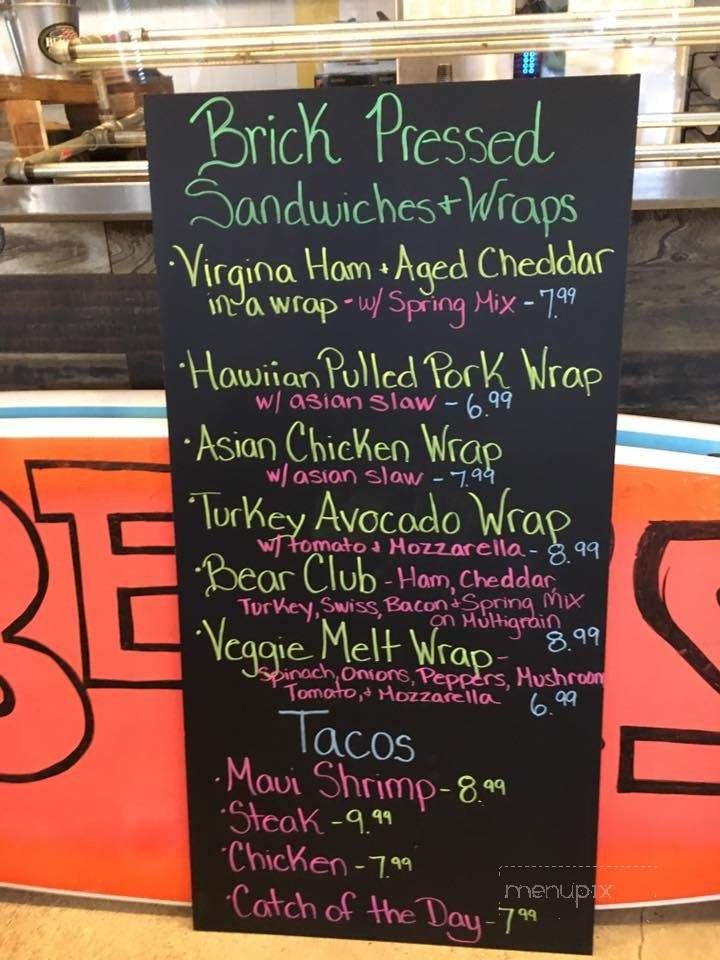 Brick Pressed
Sandwiches + Wraps
·Virgina Ham + Aged Cheddar
in a wrap - w/ Spring Mix - 7.99
·Hawiian Pulled Pork Wrap
w/ asian slaw - 6.99
·Asian Chicken Wrap
w/ asian slaw - 7.99
·Turkey Avocado Wrap
w/ tomato + Mozzarella - 8.99
·Bear Club - Ham, Cheddar,
Turkey, Swiss, Bacon + Spring Mix
on Multigrain
8.99
·Veggie Melt Wrap -
Spinach, Onions, Peppers, Mushroom
Tomato, + Mozzarella
6.99
Tacos
·Maui Shrimp - 8.99
·Steak - 9.99
·Chicken - 7.99
·Catch of the Day - 7.99
menupix